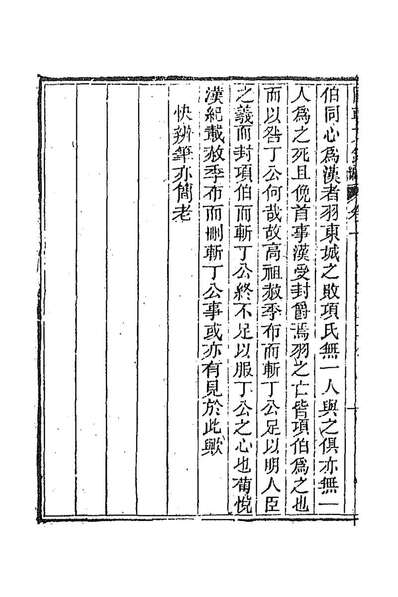 伯同心為漢者羽東城之敗項氏無一人與之俱亦無一
人為之死且俛首事漢受封爵焉羽之亡皆項伯為之也
而以咎丁公何哉故高祖赦季布而斬丁公足以明人臣
之義而封項伯而斬丁公終不足以服丁公之心也荀悅
漢紀載赦季布而刪斬丁公事或亦有見於此歟
快辨筆亦簡老